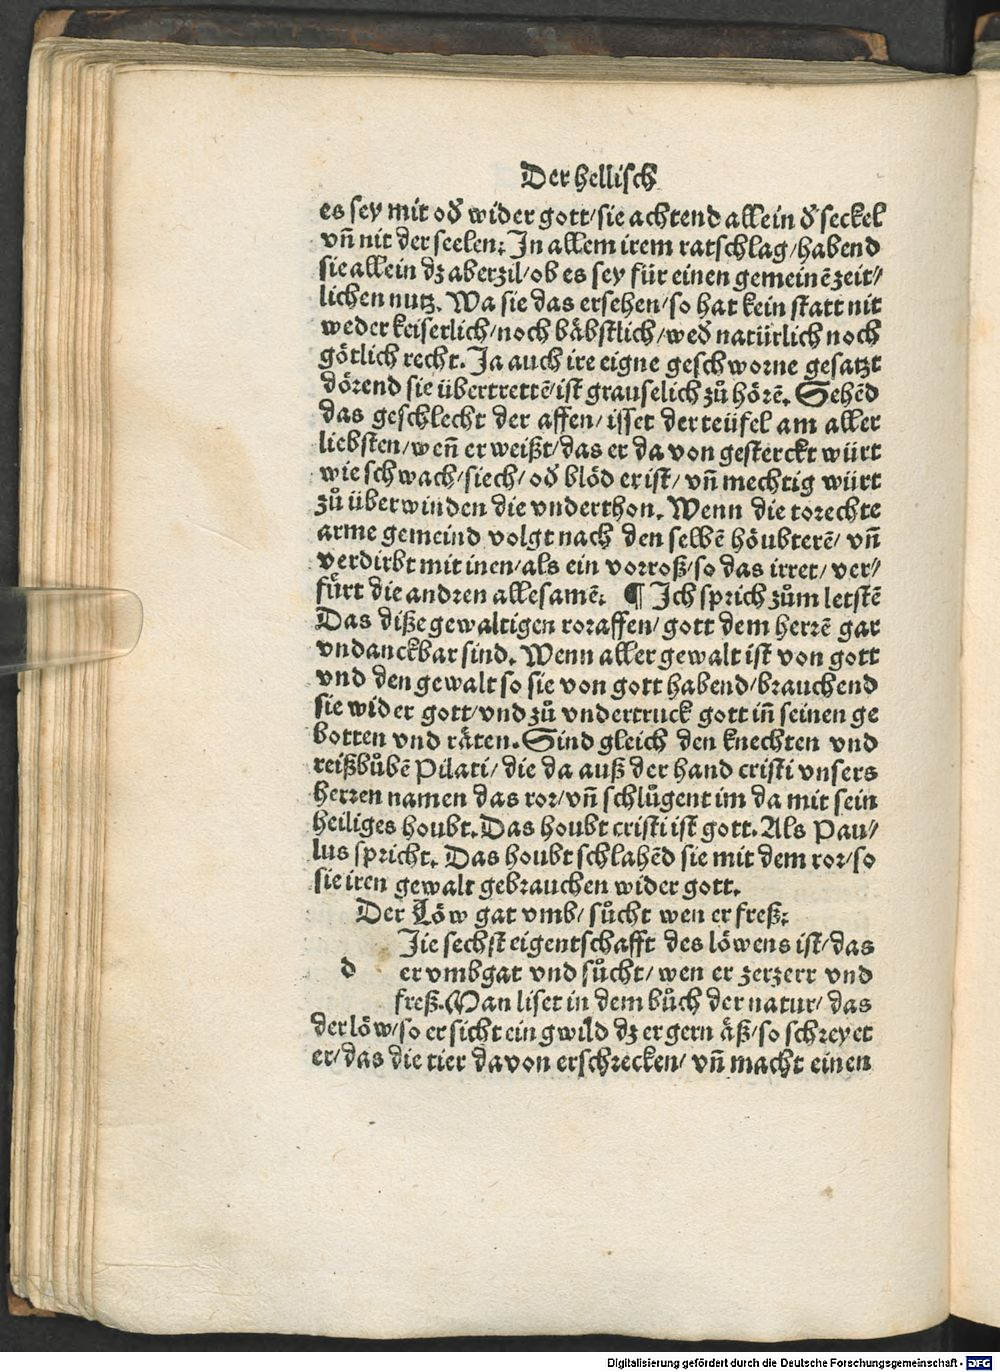 Der hellisch
es sey mit oď wider gott/sie achtend allein ď seckel
vñ nit der seelen. In allem irem ratschlag/habend
sie allein dz aberzil/ob es sey für einen gemeinē zeit/
lichen nutz. Wa sie das ersehen/so hat kein statt nit
weder keiserlich/noch bäbstlich/weď natürlich noch
götlich recht. Ja auch ire eigne geschworne gesatzt
dörend sie übertrettē/ist grauselich zů hörē. Sehēd
das geschlecht der affen/isset der teüfel am aller
liebsten/weñ er weißt/das er da von gesterckt würt
wie schwach/siech/oď blöd er ist/vñ mechtig würt
zů überwinden die vnderthon. Wenn die torechte
arme gemeind volgt nach den selbē höubterē/vñ
verdirbt mit inen/als ein vorroß/so das irret/ver/
fürt die andren allesamē. ¶ Ich sprich zům letstē
Das diße gewaltigen roraffen/gott dem herrē gar
vndanckbar sind. Wenn aller gewalt ist von gott
vnd den gewalt so sie von gott habend/brauchend
sie wider gott/vnd zů vndertruck gott iñ seinen ge
botten vnd räten. Sind gleich den knechten vnd
reißbůbē Pilati/die da auß der hand cristi vnsers
herren namen das ror/vñ schlůgent im da mit sein
heiliges houbt. Das houbt cristi ist gott. Als Pau/
lus spricht. Das houbt schlahēd sie mit dem ror/so
sie iren gewalt gebrauchen wider gott.
Der Löw gat vmb/sůcht wen er freß.
d Iie sechst eigentschafft des löwens ist/das
er vmbgat vnd sůcht/wen er zerzerr vnd
freß. Man liset in dem bůch der natur/das
der löw/so er sicht ein gwild dz er gern äß/so schreyet
er/das die tier davon erschrecken/vñ macht einen
Digitalisierung gefördert durch die Deutsche Forschungsgemeinschaft - DFG